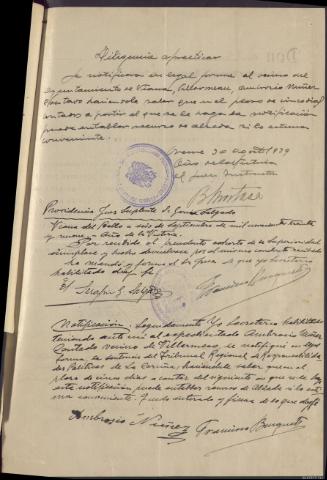 Diligencia a practicar
Se notificara en legal forma al vecino del
Ayuntamiento de Viana, Villarmeau, Ambrosio Nuñez
Cortado haciendole saber que en el plazo de cinco dias
contados a partir del que se le haga la notificación
puede entablar recurso de alzada si lo estima
conveniente.
Orense 30 agosto 1939
Año de la Victoria
el Juez Instructor
Providencia Juez Suplente Sr. Gomez Salgado
Viana del Bollo a seis de Septiembre de mil novecientos treinta
y nueve - Año de la Victoria
Por recibida el precedente
cumplase y hecho devuelvase, por el mismo conducto recibido
lo mando y firma el Sr Juez de que yo Secretario
habilitado doy fe
Serafin G. Salgado
Francisco
Notificación: Seguidamente Yo Secretario Habilitado
teniendo ante mi al expedientado Ambrosio Nuñez
Cortado vecino de Villarmeau, le notifiqué en legal
forma la sentencia del Tribunal Regional de Responsabilida
des Politicas de La Coruña; haciendole saber que en el
plazo de cinco dias a contar del siguiente en que se le haga
esta notificación, puede entablar recurso de Alzada si lo esti
ma conveniente. Quedo enterado y firma de lo que doy fe
Ambrosio Nuñez
Francisco